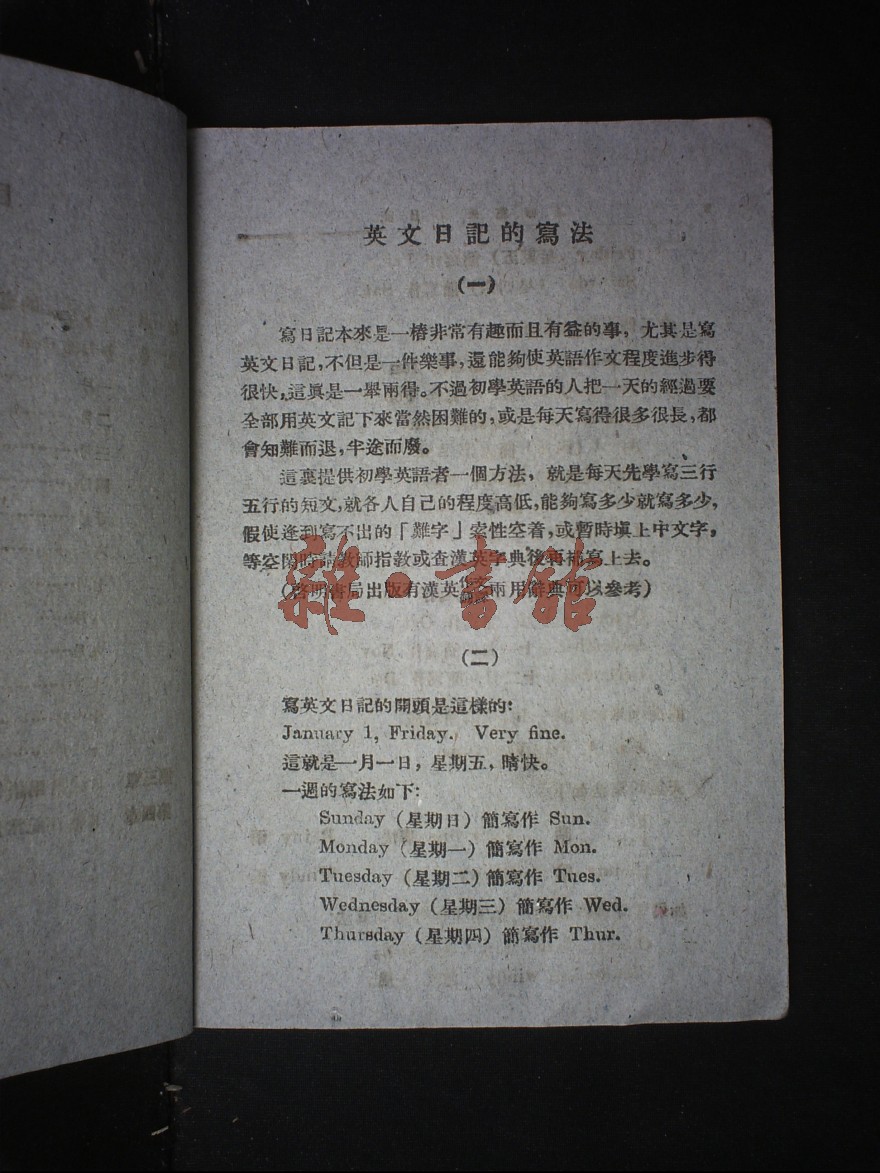 英文日記的寫法
(一)
寫日記本來是一樁非常有趣而且有益的事，尤其是寫
英文日記，不但是一件樂事，還能夠使英語作文程度進步得
很快，這眞是一舉兩得。不過初學英語的人把一天的經過要
全部用英文記下來當然困難的，或是每天寫得很多很長，都
會知難而退，半途而廢。
這裏提供初學英語者一個方法，就是每天先學寫三行
五行的短文，就各人自己的程度高低，能夠寫多少就寫多少，
假使逢到寫不出的「難字」索性空着，或暫時塡上中文字，
等空閑時請教師指敎或查漢英字典後再補寫上去。
(啓明書局出版有漢英作文兩用辭典可以參考)
雜·書館
(二)
寫英文日記的開頭是這樣的：
January 1, Friday. Very fine.
這就是一月一日，星期五，晴快。
一週的寫法如下：
Sunday (星期日) 簡寫作 Sun.
Monday (星期一) 簡寫作 Mon.
Tuesday (星期二) 簡寫作 Tues.
Wednesday (星期三) 簡寫作 Wed.
Thursday (星期四) 簡寫作 Thur.